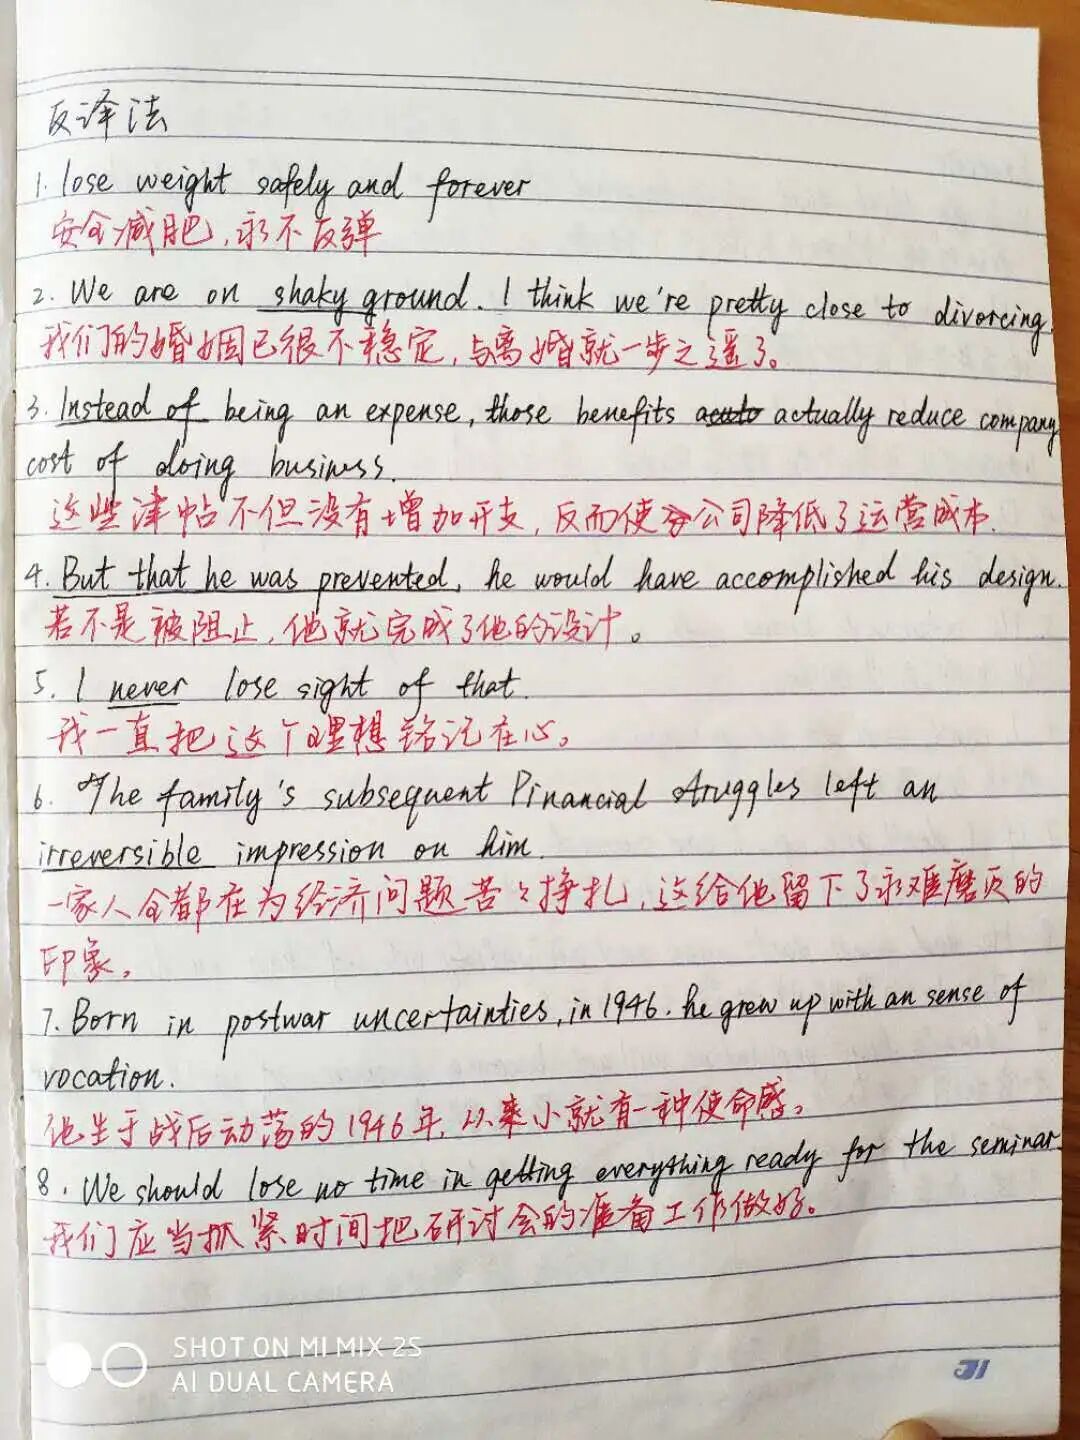 反译法
1. lose weight safely and forever
安全减肥,永不反弹
2. We are on shaky ground. I think we're pretty close to divorcing.
我们的婚姻已很不稳定,与离婚就一步之遥了。
3. Instead of being an expense, those benefits actually reduce company
cost of doing business.
这些津帖不但没有增加开支,反而使公司降低了运营成本.
4. But that he was prevented, he would have accomplished his design.
若不是被阻止,他就完成了他的设计。
5. I never lose sight of that.
我一直把这个理想铭记在心。
6. The family's subsequent Financial struggles left an
irreversible impression on him.
一家人全都在为经济问题苦々挣扎,这给他留下了永难磨灭的
印象。
7. Born in postwar uncertainties, in 1946. he grew up with an sense of
vocation.
他生于战后动荡的1946年,从小就有一种使命感。
8. We should lose no time in getting everything ready for the seminar.
我们应当抓紧时间把研讨会的准备工作做好。
SHOT ON MI MIX 2S
AI DUAL CAMERA